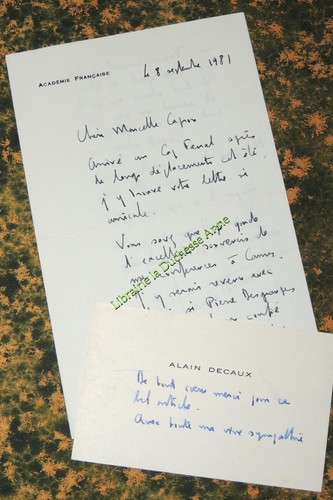 ACADÉMIE FRANÇAISE
le 8 septembre 1981
Chère Marcelle Capron
Arrivé au Cap Ferrat après
de longs déplacements cet été,
j'y trouve votre lettre si
amicale.
Vous savez que je garde
d'excellents souvenirs de
mes conférences à Cannes.
J'y serais revenu avec
si Pierre Desgranges
Librairie la Duchesse Anne
ALAIN DECAUX
De tout coeur merci pour ce
bel article.
Avec toute ma vive sympathie